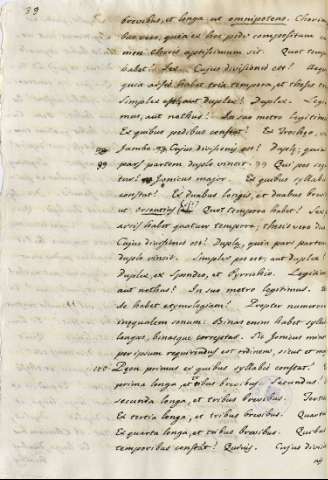 39
brevibus, et longa ut omnipotens. Choriam
bus vero, quia ex hoc pede compositum
men choris aptissimum sit. Quot temp
habet? Sex. Cujus divisionis est? Aequ
quia arsis habet tria tempora, et thesis
Simplex est, aut duplex? Duplex. Legit
mus, aut nothus? In suo metro legitimus.
Ex quibus pedibus constat? Ex Trocheo,
Jambo. Cujus divisionis est? Duply; quia
pars partem duplo vincit. Qui pes seq
tur? Jonicus major. Ex quibus syllabis
constat? Ex duabus longis, et duabus brevi
ut Quot tempora habet? Sex.
arsis habet quatuor tempora, thesis vero duo
Cujus divisionis est? Duply, quia pars partem
duplo vincit. Simplex pes est, aut duplex?
Duplex, ex Spondeo, et Pyrrichio. Legitimus
aut nothus? In suo metro legitimus.
de habet etymologiam? Propter numeroru
inequalem sonum: Binas enim habet syllab
longas, binasque correptas. Sic Jonicus mino
per ipsum requirendus est ordinem, sicut et ma
Peon primus ex quibus syllabis constat?
prima longa, et tribus brevibus. Secundus?
secunda longa, et tribus brevibus. Tertiu
Ex tertia longa, et tribus brevibus. Quartu
Ex quarta longa, et tribus brevibus. Quibus
temporibus constat? Quinis. Cujus divisio